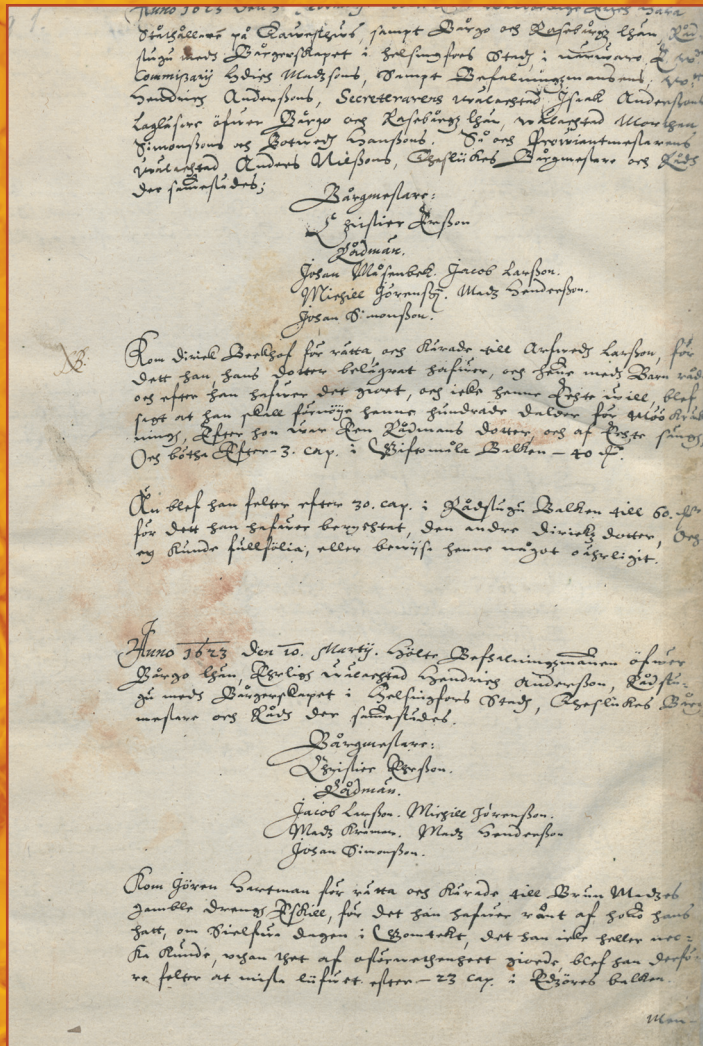 Anno 1623 den
Ståthållare på Tawesthws, sampt Bårgo och Raseburgz lhän, Råd
stugu medh Bårgerskapet i helsingfors Stadh, i närwaro
Commißarij Hdich Madzsons, Sampt Befalningzmansens,
Hendrich Anderßons, Secreterarens wälachtad, Isaak Anderßons
Lagläsare öfwer Bårgo och Raseburgz lhän, wälachtad Morthen
Simonßons och Botwedh Hanßons. Så och Prowiantmestarens
wälachtad Anders Nilßons, Theslikes Bårgmestare och Rådh
der samestudes;
Bårgmestare:
Christier Erßson
Rådmän.
Johan Måsenbek. Jacob Larßon.
Michill Jörenß. Madz Henderßon.
Johan Simonßon.
Kom dirick Beekhof för rätta, och Kärade till Arfwedh Larßon, för
dett han, hans dotter belägrat hafuer, och henne medh Barn råd
och efter han hafuer det giort, och icke henne Echte will, blef
sagt at han skall förnöye henne hundrade daler för Möö Kränk
ningh, Efter hon war Een Rådmans dotter och af Echte sängh,
Och böthe Efter 3. cap. i Gifftomåla Balken – 40 mk.
Än blef han felter efter 30. cap. i Rådstugu Balken till 60. mk
för dett han hafuer berychtat, den andre diriekz dotter, Och
ey Kunde fullfölia, eller bewijsa henne något oährligit.
Anno 1623 den 10. Martij. Hölte Befhalningzmannen öfwer
Bårgo lhän, Ehrligh wälachtad Hendrich Anderßon, Rådstu-
gu medh Bårgerskapet i Helsingfors Stadh, Theslikes Bårg
mestare och Rådh der samestudes.
Bårgmestare:
Christier Erßson.
Rådmän.
Jacob Larßon. Michill Jörenßon.
Madz Kröмer. Madz Henderßon
Johan Simonßon.
Kom Jören Hartman för rätta och Kärade till Brun Madzes
gamble drengh Eskill, för det han hafuer ränt af hono hans
hatt, om Sielfua dagen i Tomtekt, det han icke heller nec-
ka Kunde, uthan thet af oförwethenheet giorde, blef han derfö-
re felter at mista lijfuet efter – 23 cap. i Edzöres balken
Men